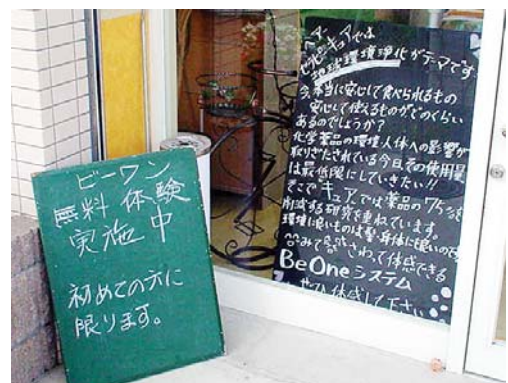 ビーワン
無料体験
実施中
初めての方に
限ります。
ヘアー
キュアでは
地球環境浄化がテーマです
今本当に安心して食べられるもの
安心して使えるものがどのくらい
あるのでしょうか?
化学薬品の環境人体への影響が
取りざたされている今日その使用量
は最低限にしていきたい!!
そこでキュアでは薬品の75%を
削減する研究を重ねています。
環境に良いものは髪・身体にも良いのです
みて さわって体感できる
BeOneシステム
ぜひ体感して下さい